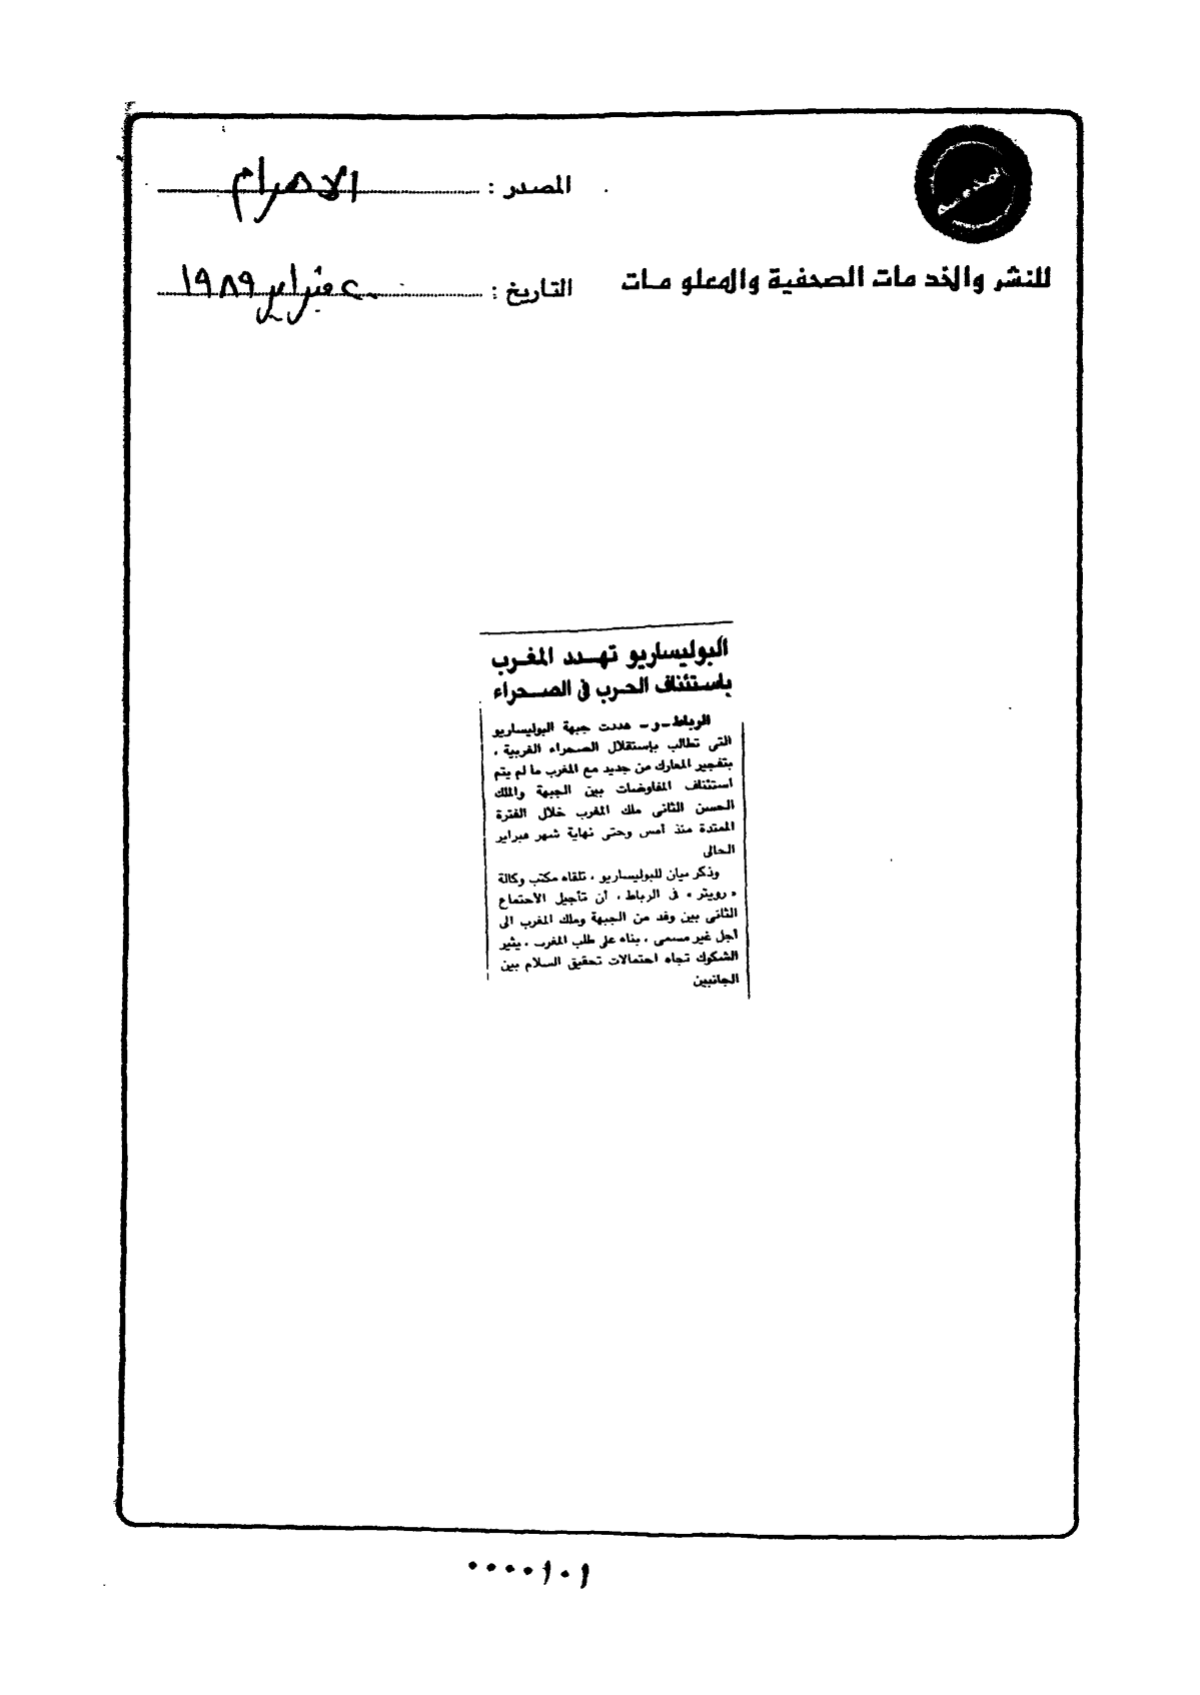 المصدر : الاهرام
للنشر والخدمات الصحفية والمعلومات
التاريخ : ٢٠ فبراير ١٩٨٩
البوليساريو تهدد المغرب
باستئناف الحرب فى الصحراء
الرباط ـ و ـ هددت جبهة البوليساريو
التى تطالب بإستقلال الصحراء الغربية ،
بتفجير المعارك من جديد مع المغرب ما لم يتم
استئناف المفاوضات بين الجبهة والملك
الحسن الثانى ملك المغرب خلال الفترة
الممتدة منذ أمس وحتى نهاية شهر فبراير
الحالى
وذكر بيان للبوليساريو ، تلقاه مكتب وكالة
« رويتر » فى الرباط ، أن تأجيل الاجتماع
الثانى بين وفد من الجبهة وملك المغرب الى
أجل غير مسمى ، بناء على طلب المغرب ، يثير
الشكوك تجاه احتمالات تحقيق السلام بين
الجانبين
٠٠٠٠١٠١